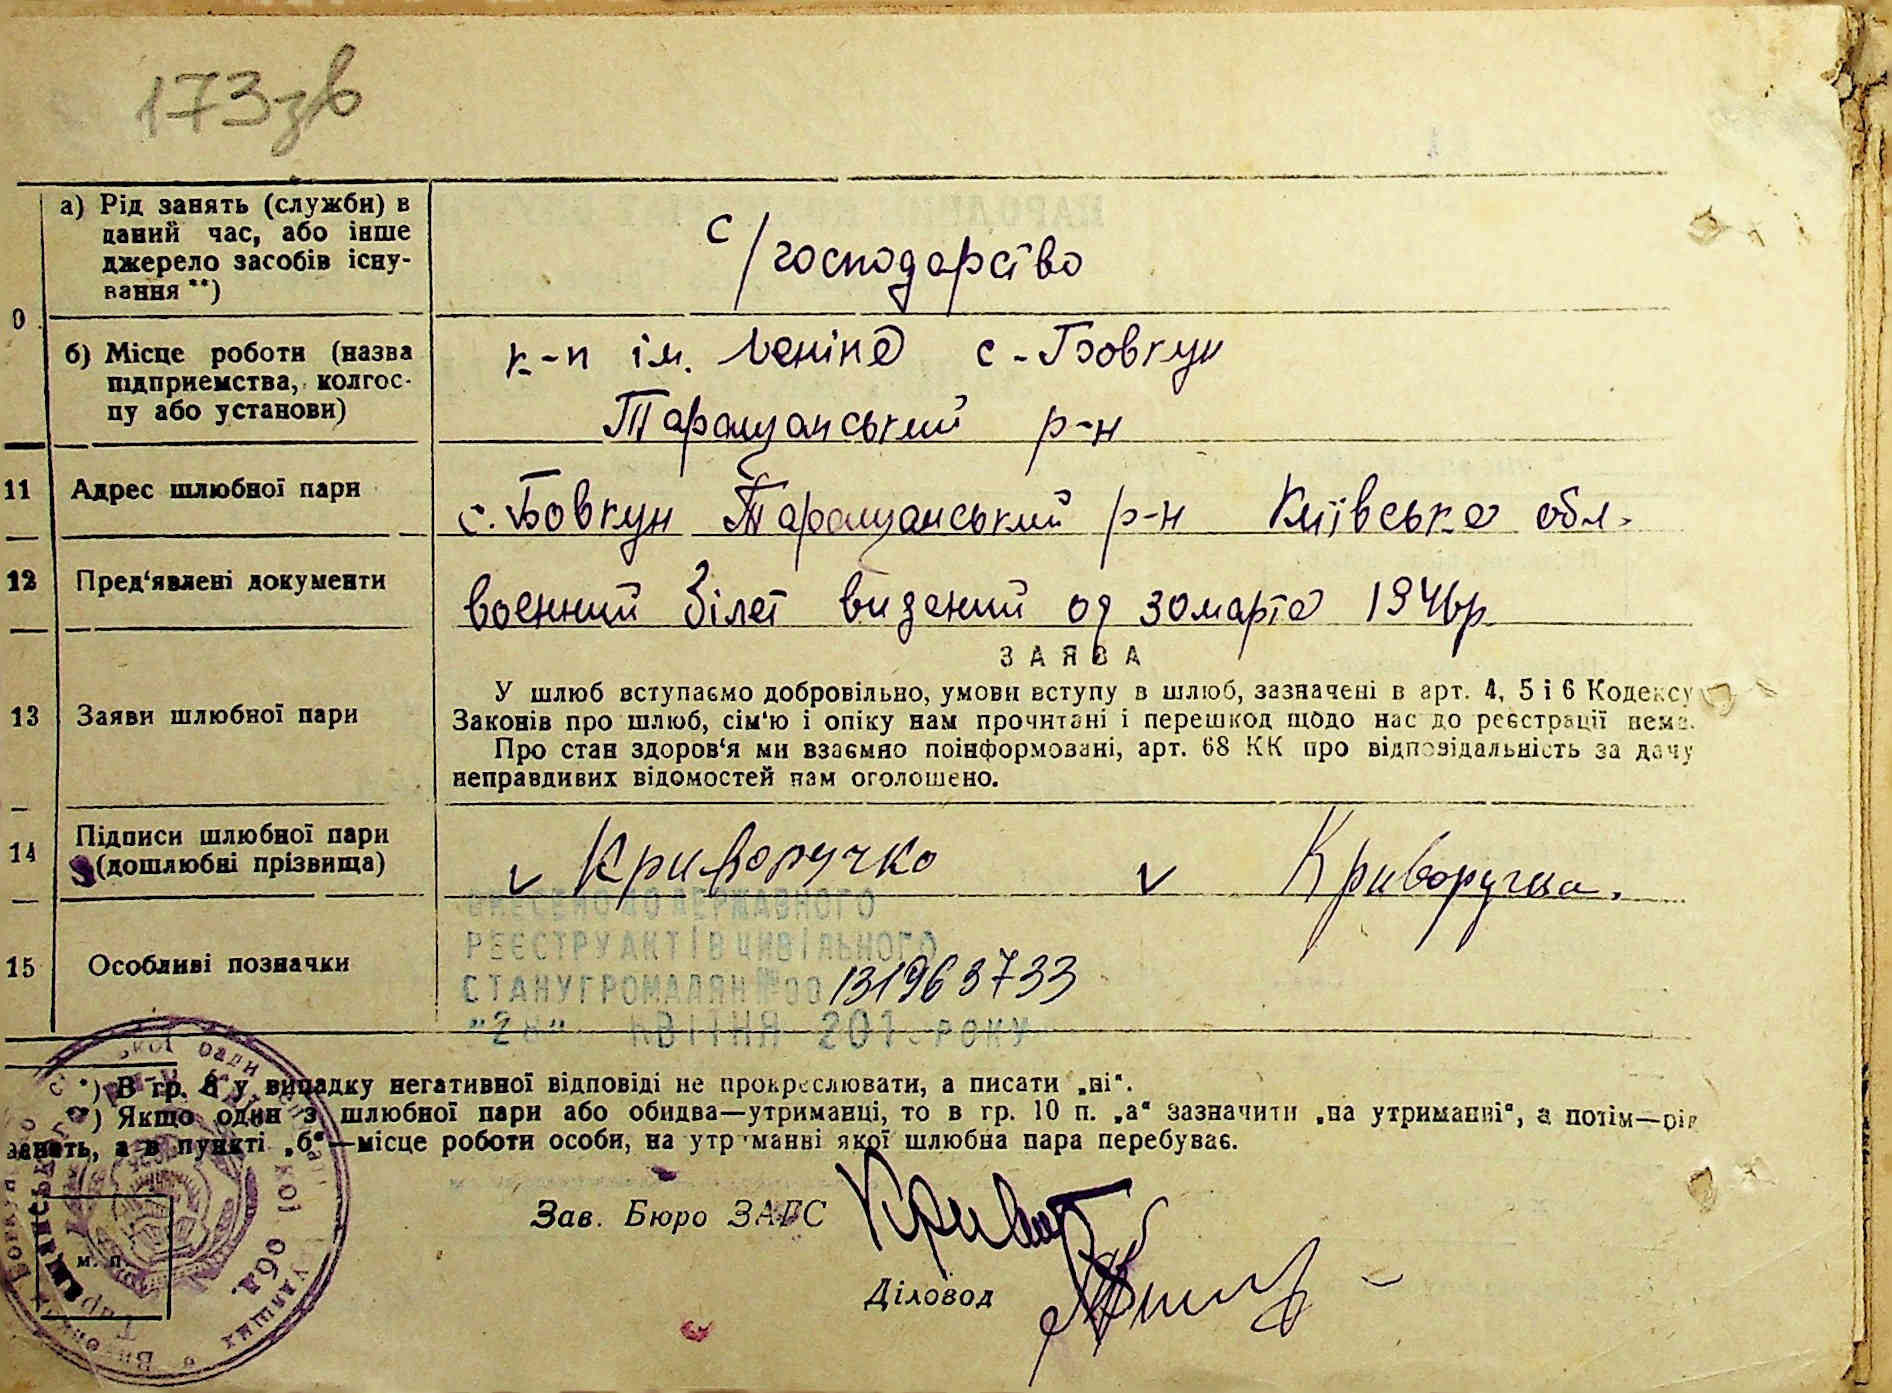 173зв
а) Рід занять (служби) в
даний час, або інше
джерело засобів існу-
вання **)
с/господарство
0
б) Місце роботи (назва
підприемства, колгос-
пу або установи)
к-п ім. Леніна с-Бовкун
Таращанський р-н
11 Адрес шлюбної пари
с. Бовкун Таращанський р-н Київська обл.
12 Пред‘явлені документи
военний білет виданий од 30 марта 1946р
ЗАЯВА
13 Заяви шлюбної пари
У шлюб вступаємо добровільно, умови вступу в шлюб, зазначені в арт. 4, 5 і 6 Кодексу
Законів про шлюб, сім‘ю і опіку нам прочитані і перешкод щодо нас до реєстрації нема.
Про стан здоров‘я ми взаємно поінформовані, арт. 68 КК про відповідальність за дачу
неправдивих відомостей нам оголошено.
14 Підписи шлюбної пари
(дошлюбні прізвища)
v Криворучко v Криворучка.
ВНЕСЕНО ДО ДЕРЖАВНОГО
РЕЄСТРУ АКТІВ ЦИВІЛЬНОГО
15 Особливі позначки
СТАНУ ГРОМАДЯН № 00 131963733
КВІТНЯ 201 РОКУ
*) В гр. 8 у випадку негативної відповіді не прокреслювати, а писати „ні“.
*) Якщо один з шлюбної пари або обидва—утриманці, то в гр. 10 п. „а“ зазначити „на утриманні“, а потім—рід
занять, а в пункті „б“—місце роботи особи, на утриманні якої шлюбна пара перебуває.
Зав. Бюро ЗАГС
Діловод
м. п.